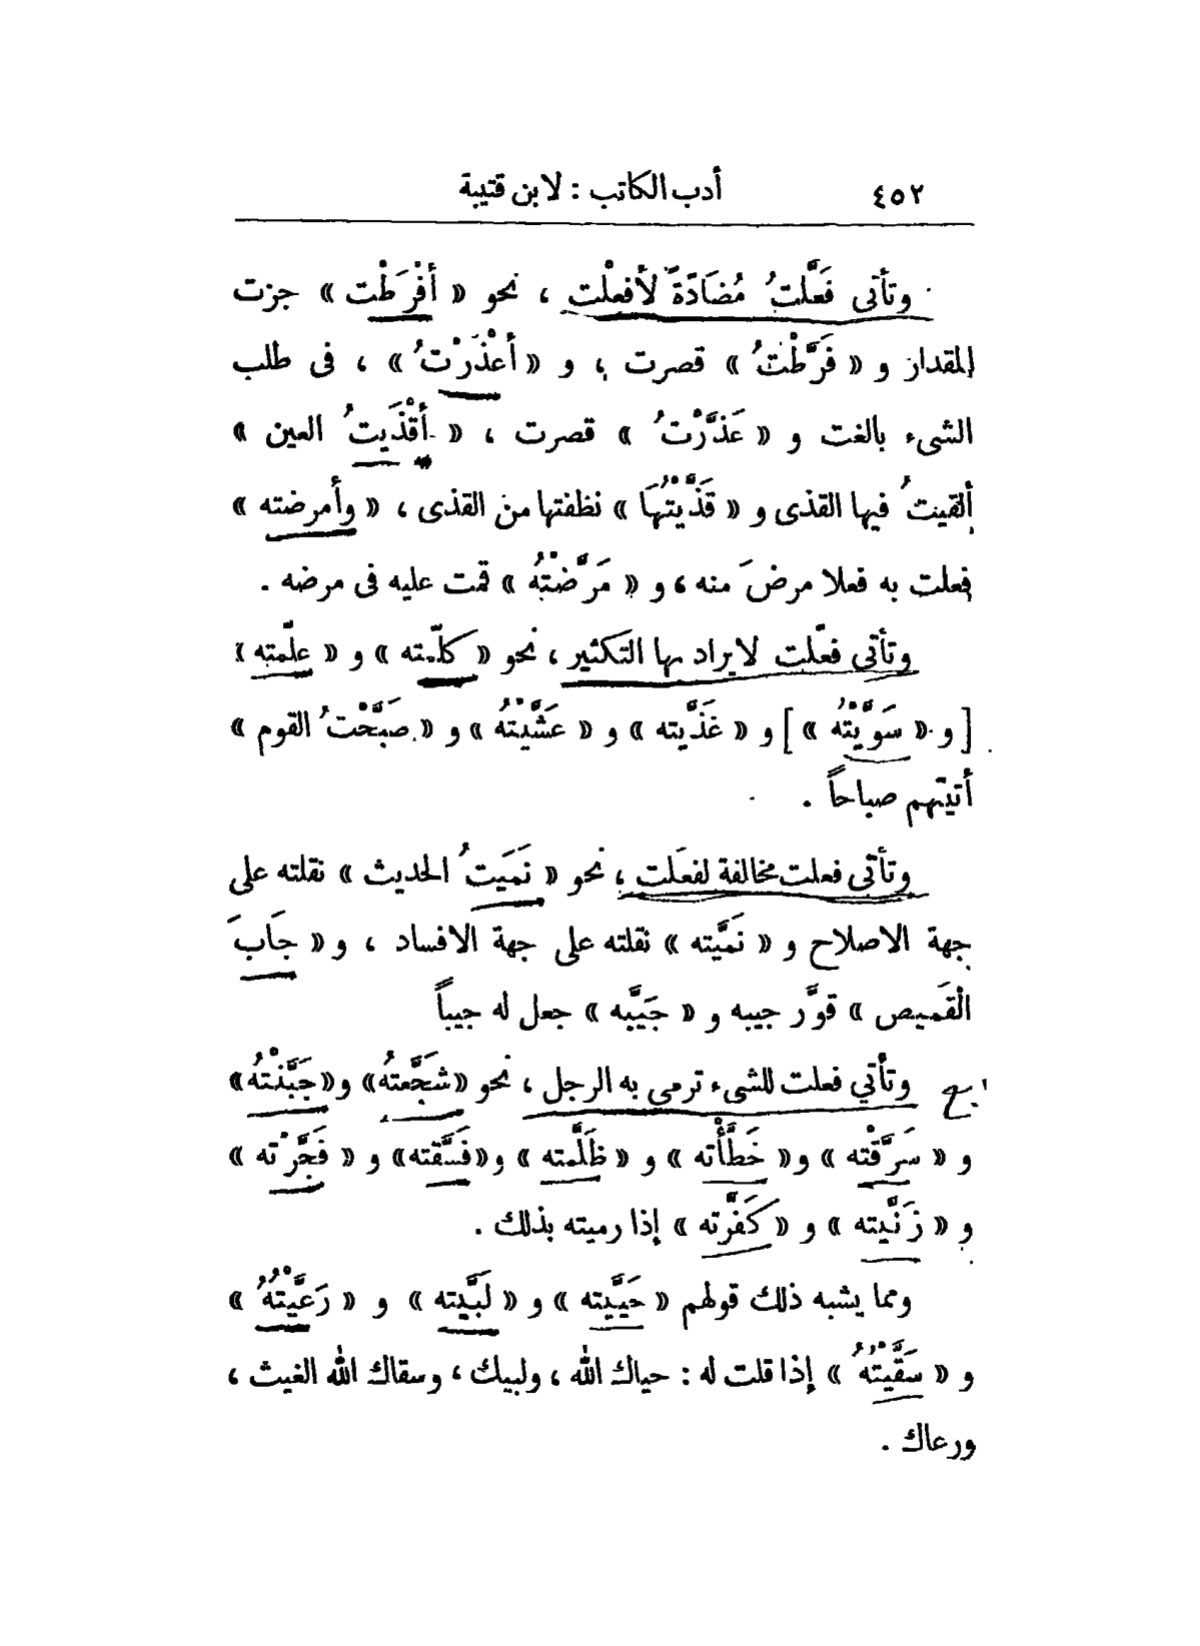 ٤٥٢ أدب الكاتب : لابن قتيبة
وتأتى فَعَّلتُ مُضَادَّةً لأفعلْت ، نحو « أفْرَطْت » جزت
المقدار و « فَرَّطْتُ » قصرت ، و « أعْذَرْتُ » ، فى طلب
الشىء بالغت و « عَذَّرْتُ » قصرت ، « أقْذَيتُ العين »
ألقيتُ فيها القذى و « قَذَّيْتُهَا » نظفتها من القذى ، « وأمرضته »
فعلت به فعلا مرضَ منه ، و « مَرَّضْتهُ » قمت عليه فى مرضه .
وتأتى فعّلت لا يراد بها التكثير ، نحو « كلّمته » و « علّمته »
[ و « سَوَّيْتهُ » ] و « غَذَّيته » و « عَشَّيْتهُ » و « صَبَّحْتُ القوم »
أتيتهم صباحاً .
وتأتى فعلت مخالفة لفعَلت ، نحو « نَمَيتُ الحديث » نقلته على
جهة الاصلاح و « نَمَّيته » نقلته على جهة الافساد ، و « جَابَ
الْقَميص » قوَّر جيبه و « جَيَّبه » جعل له جيباً
وتأتي فعلت للشىء ترمى به الرجل ، نحو « شَجَّعتهُ » و « جَبَّنْتهُ »
و « سَرَّقْته » و « خَطَّأْته » و « ظَلَّمته » و « فَسَّقته » و « فَجَّرْته »
و « زَنَّيته » و « كَفَّرْته » إذا رميته بذلك .
ومما يشبه ذلك قولهم « حَيَّيته » و « لَبَّيته » و « رَعَّيْتهُ »
و « سَقَّيْتهُ » إذا قلت له : حياك الله ، ولبيك ، وسقاك الله الغيث ،
ورعاك .